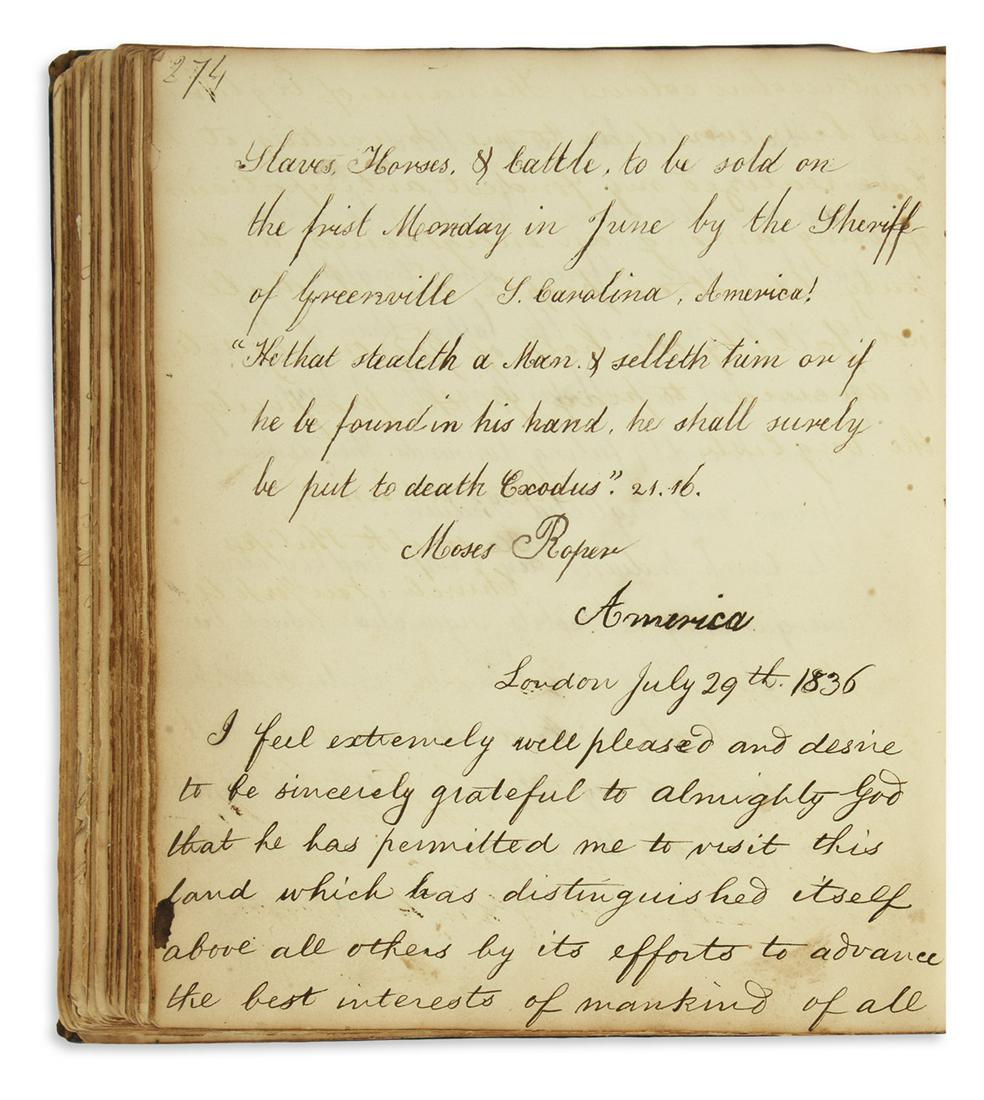 274
Slaves, Horses, & Cattle, to be sold on
the frist Monday in June by the Sheriff
of Greenville S. Carolina, America!
"He that stealeth a Man. & selleth him or if
he be found in his hand, he shall surely
be put to death Exodus". 21.16.
Moses Roper
America
London July 29th. 1836
I feel extremely well pleased and desire
to be sincerely grateful to almighty God
that he has permitted me to visit this
land which has distinguished itself
above all others by its efforts to advance
the best interests of mankind of all